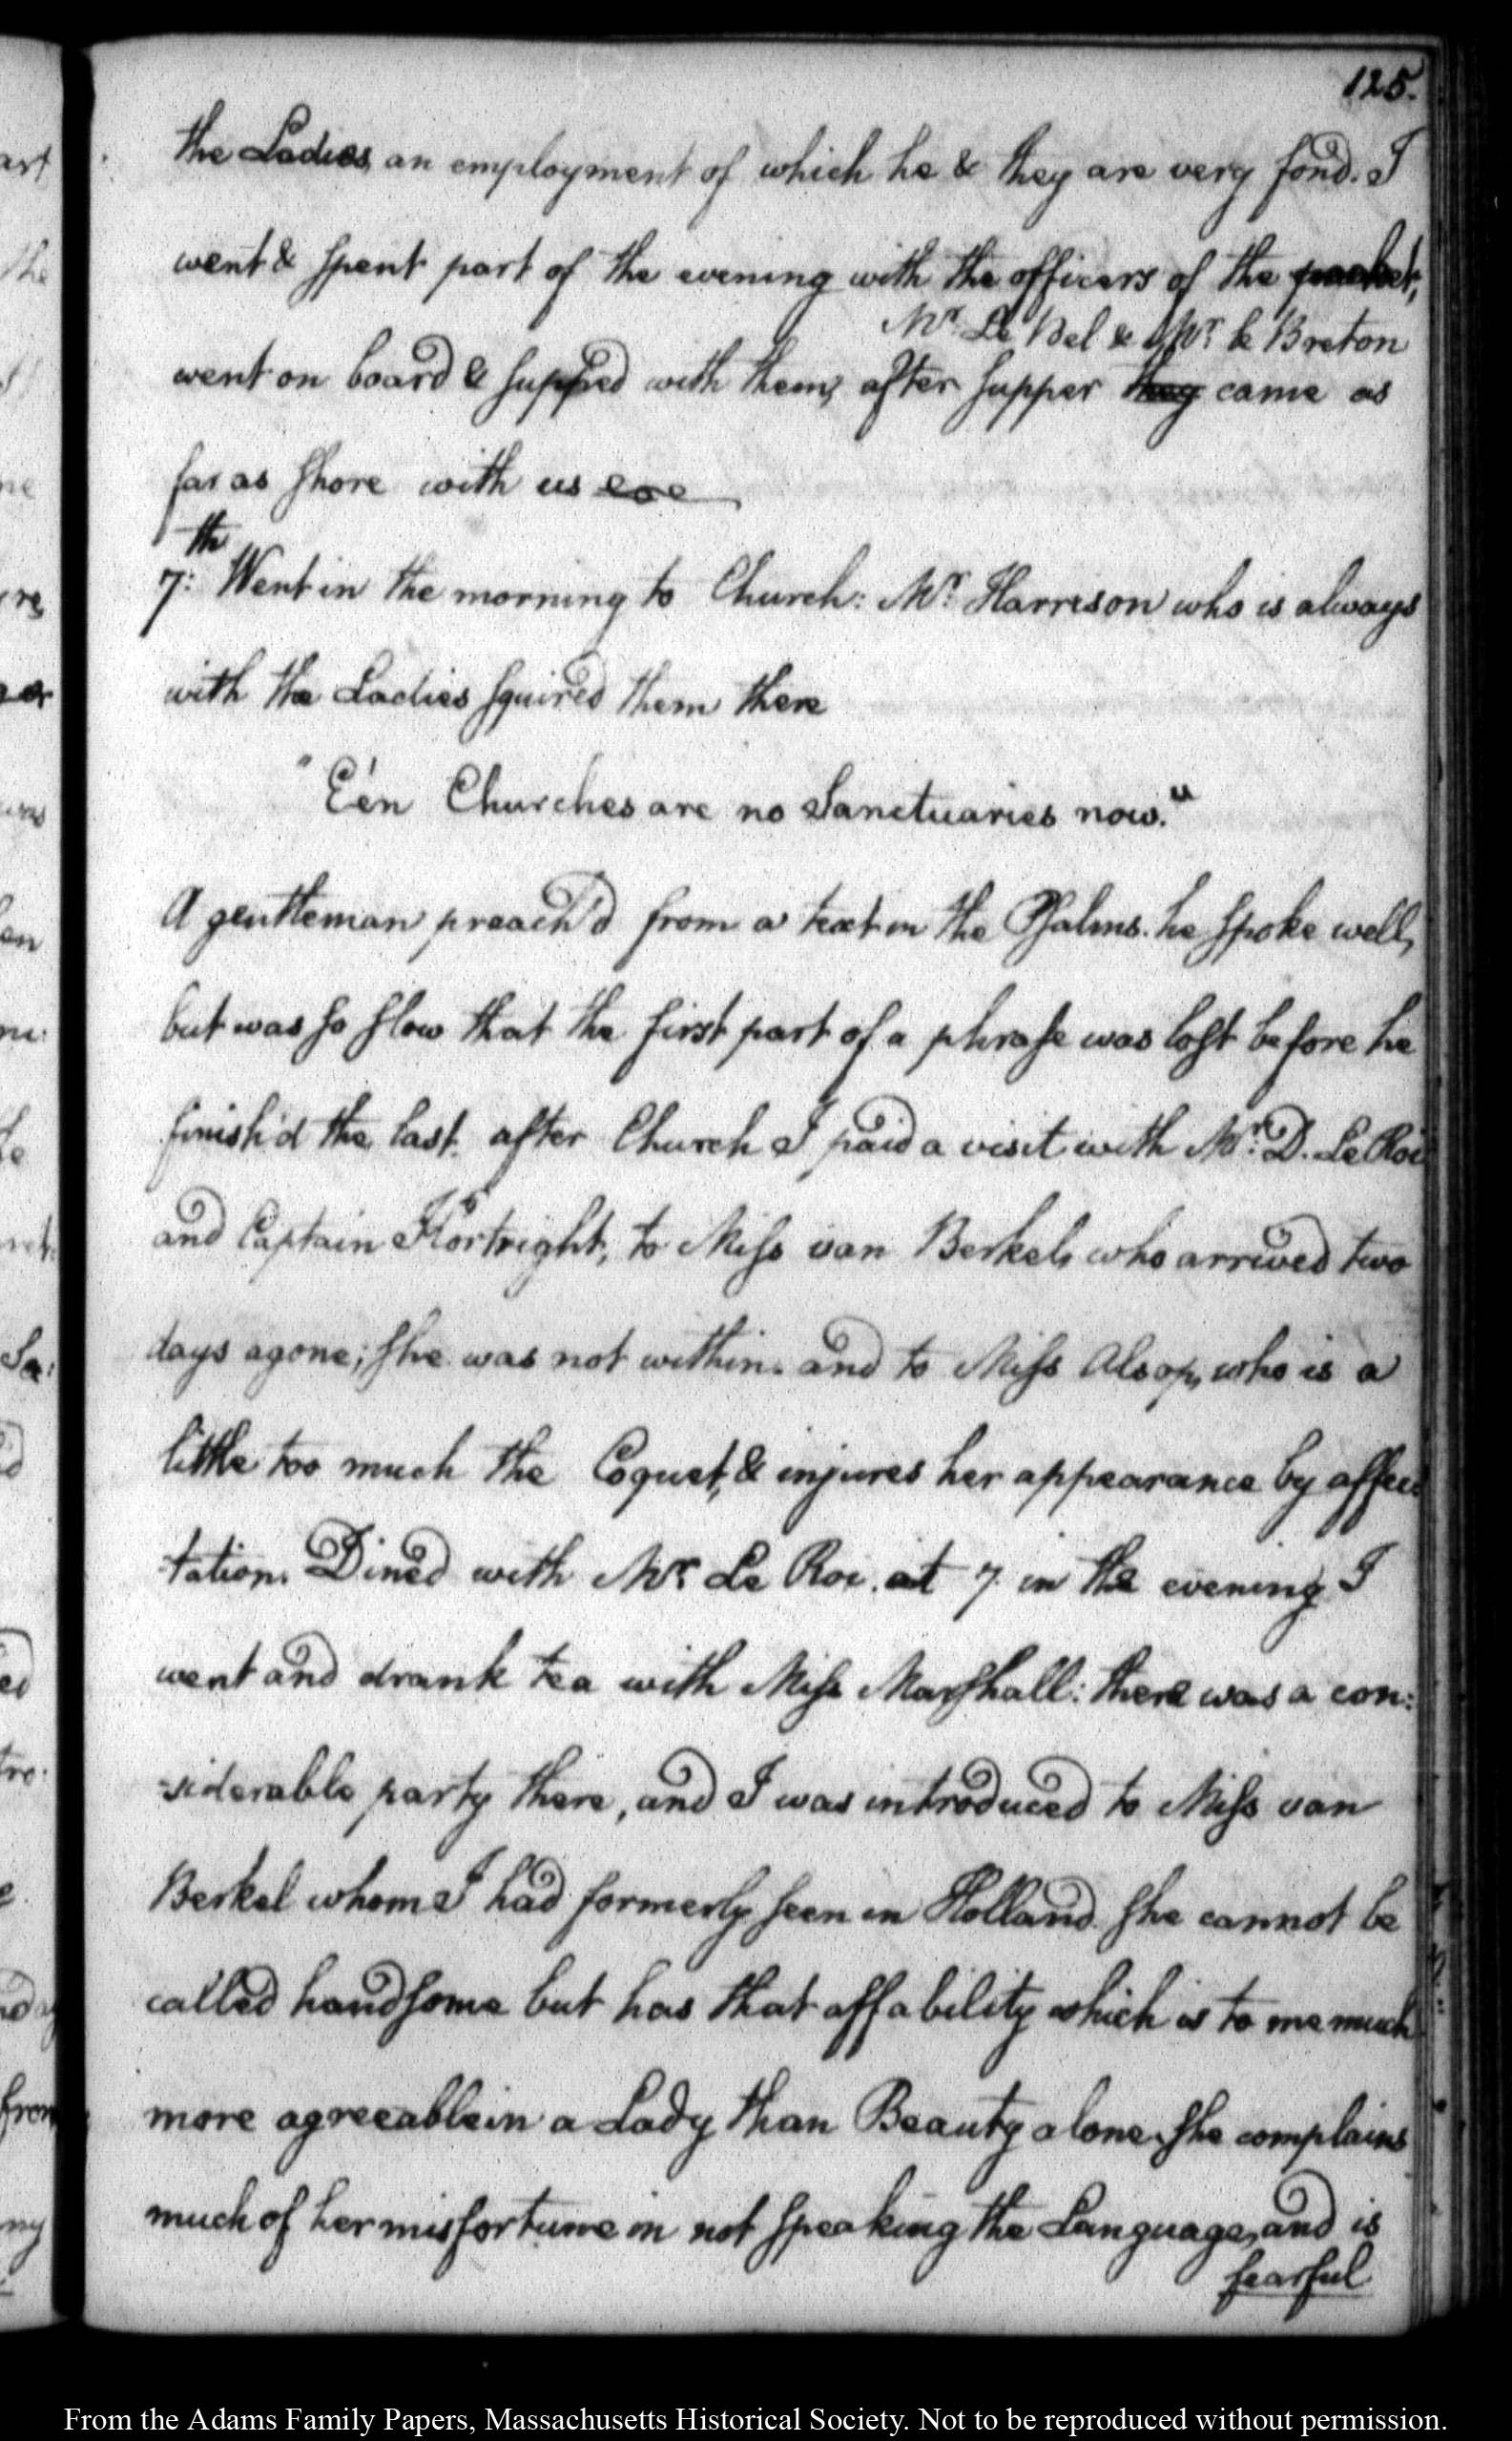 125.
the Ladies, an employment of which he & they are very fond. I
went & spent part of the evening with the officers of the packet,
Mr. Le Bel & Mr. le Breton
went on board & supped with them, after supper they came as
far as shore with us
7th: Went in the morning to Church: Mr. Harrison who is always
with the Ladies squired them there
"E'en Churches are no Sanctuaries now."
A gentleman preach'd from a text in the Psalms. he spoke well,
but was so slow that the first part of a phrase was lost before he
finish'd the last. after Church I paid a visit with Mr. D. Le Roi
and Captain Kortright, to Miss van Berkel, who arrived two
days agone; she was not within. and to Miss Alsop, who is a
little too much the Coquet, & injures her appearance by affec
tation. Dined with Mr. Le Roi. at 7 in the evening I
went and drank tea with Miss Marshall: there was a con:
-siderable party there, and I was introduced to Miss van
Berkel whom I had formerly seen in Holland. She cannot be
called handsome but has that affability which is to me much
more agreeable in a Lady than Beauty alone. She complains
much of her misfortune in not speaking the Language, and is
fearful
From the Adams Family Papers, Massachusetts Historical Society. Not to be reproduced without permission.